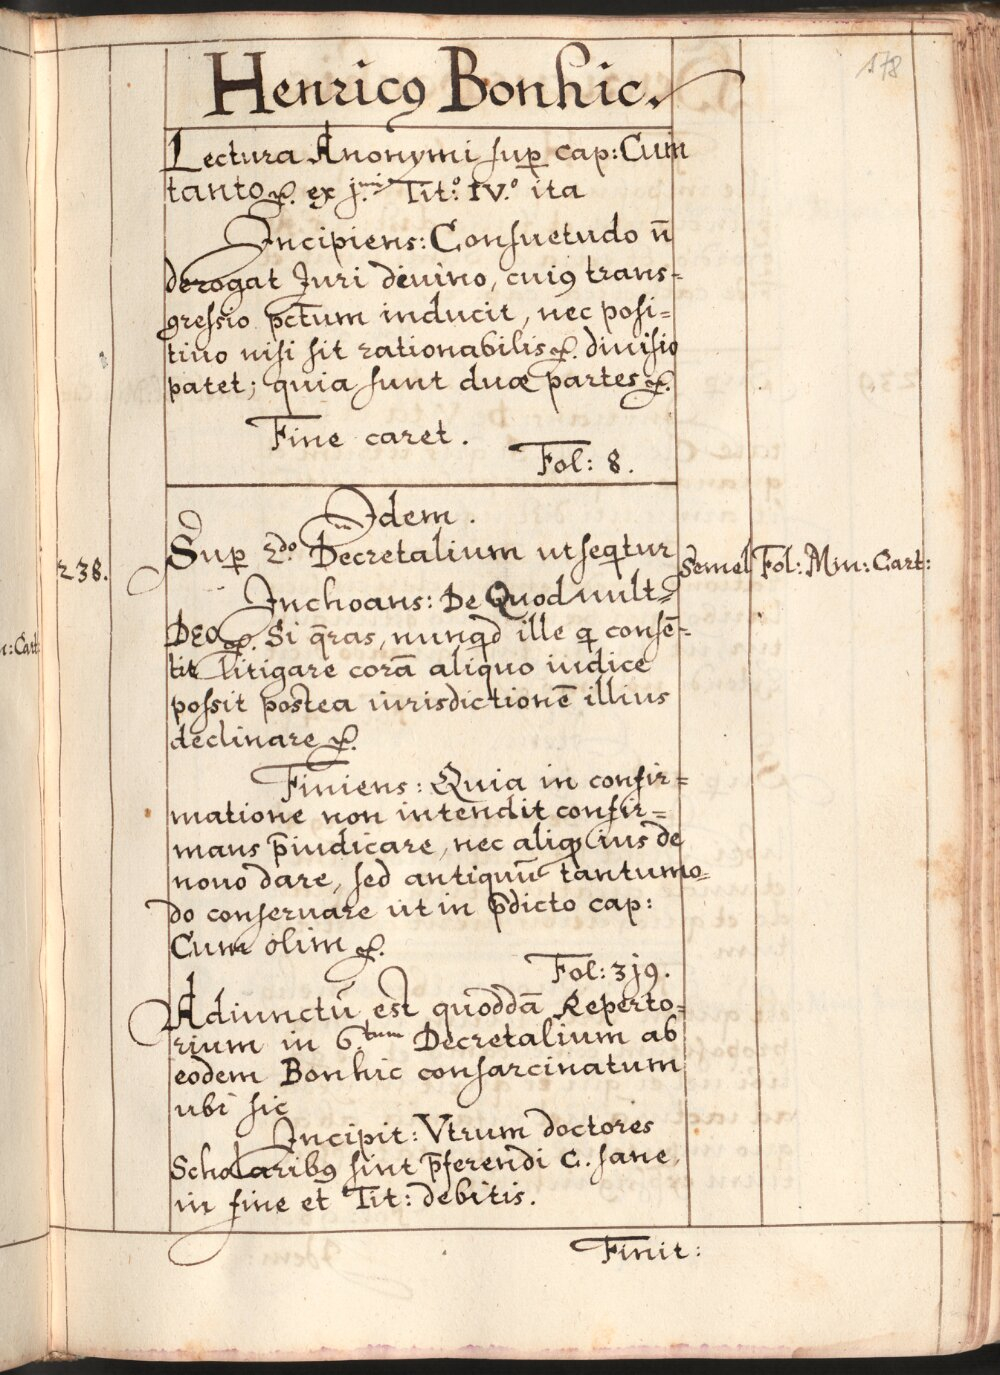 178
Henricꝰ Bonhic.
Lectura Anonymi sup cap: Cum
tanto &. ex j.mi Tit.º IV.º ita
Incipiens: Consuetudo n̄
derogat Juri divino, cuiꝰ trans-
gressio pctum inducit, nec posi-
tiuo nisi sit rationabilis &. diuisio
patet; quia sunt duæ partes &.
Fine caret.
Fol: 8.
Idem.
238.
Sup in 2.do Decretalium ut seqtur
Semel Fol: Min: Cart:
Inchoans: De Quoduult-
Deo &. Si q̄ras, nunqd ille q consē-
tit litigare corā aliquo iudice
possit postea iurisdictionē illius
declinare &.
Finiens: Quia in confir-
matione non intendit confir-
mans p̄iudicare, nec aliqd ius de
nouo dare, sed antiquū tantumo-
do conseruare ut in p̄dicto cap:
Cum olim &.
Fol: 3j9.
Adiunctū est quoddā Reperto-
rium in 6.tum Decretalium ab
eodem Bonhic consarcinatum
ubi sic
Incipit: Vtrum doctores
Scholaribꝰ sint p̄ferendi C. sane
in fine et Tit: debitis.
Finit: